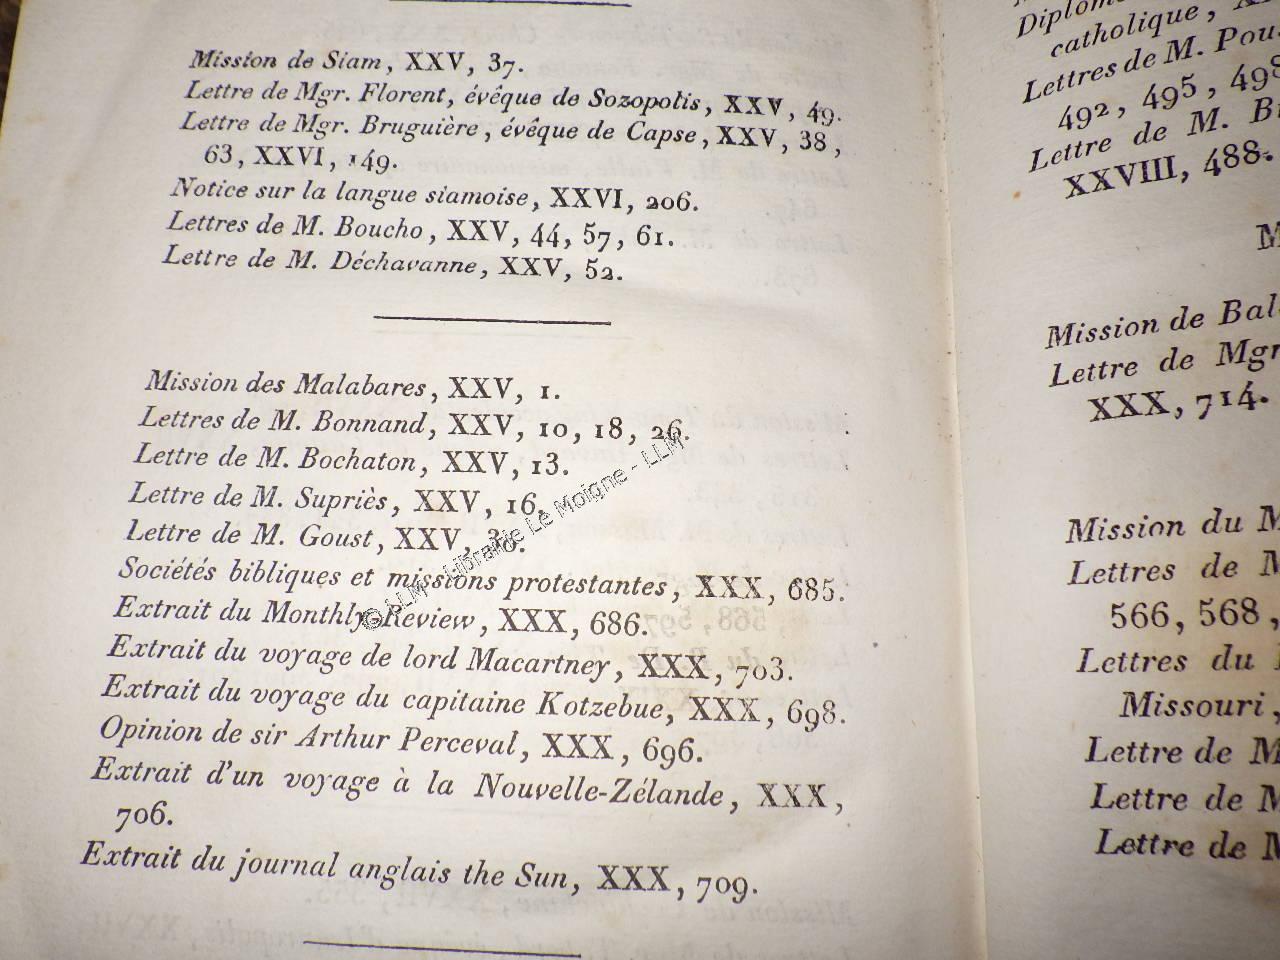 Mission de Siam, XXV, 37.
Lettre de Mgr. Florent, évêque de Sozopolis, XXV, 49.
Lettre de Mgr. Bruguière, évêque de Capse, XXV, 38,
63, XXVI, 149.
Notice sur la langue siamoise, XXVI, 206.
Lettres de M. Boucho, XXV, 44, 57, 61.
Lettre de M. Déchavanne, XXV, 52.
Mission des Malabares, XXV, 1.
Lettres de M. Bonnand, XXV, 10, 18, 26.
Lettre de M. Bochaton, XXV, 13.
Lettre de M. Supriès, XXV, 16.
Lettre de M. Goust, XXV, 30.
Sociétés bibliques et missions protestantes, XXX, 685.
Extrait du Monthly-Review, XXX, 686.
Extrait du voyage de lord Macartney, XXX, 703.
Extrait du voyage du capitaine Kotzebue, XXX, 698.
Opinion de sir Arthur Perceval, XXX, 696.
Extrait d'un voyage à la Nouvelle-Zélande, XXX,
706.
Extrait du journal anglais the Sun, XXX, 709.
© LLM - Librairie Le Moigne - LLM
catholique,
Lettres de M.
492, 495,
Lettre de M.
XXVIII, 488.
Mission de
Lettre de Mgr
XXX, 714.
Mission du
Lettres de
566, 568,
Lettres du
Missouri,
Lettre de
Lettre de
Lettre de